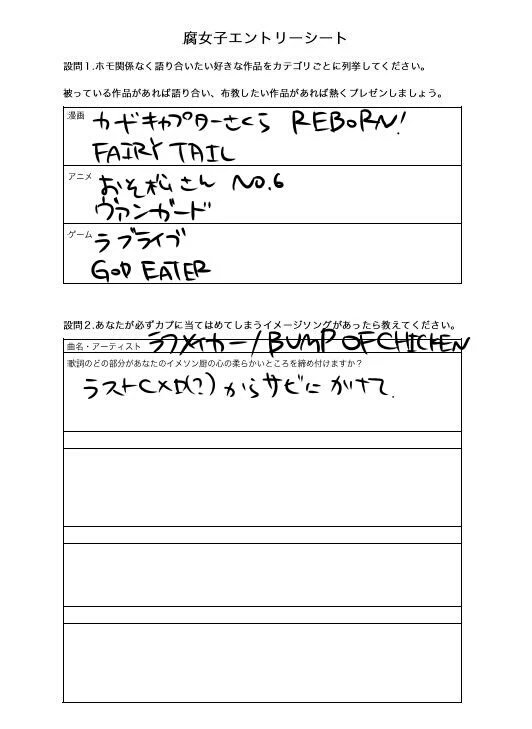 腐女子エントリーシート
設問1.ホモ関係なく語り合いたい好きな作品をカテゴリごとに列挙してください。
被っている作品があれば語り合い、布教したい作品があれば熱くプレゼンしましょう。
漫画 カードキャプターさくら REBORN!
FAIRY TAIL
アニメ おそ松さん NO.6
ヴァンガード
ゲーム ラブライブ
GOD EATER
設問2.あなたが必ずカプに当てはめてしまうイメージソングがあったら教えてください。
曲名・アーティスト ラフメイカー/BUMP OF CHICKEN
歌詞のどの部分があなたのイメソン厨の心の柔らかいところを締め付けますか?
ラストCメロ(?)からサビにかけて.